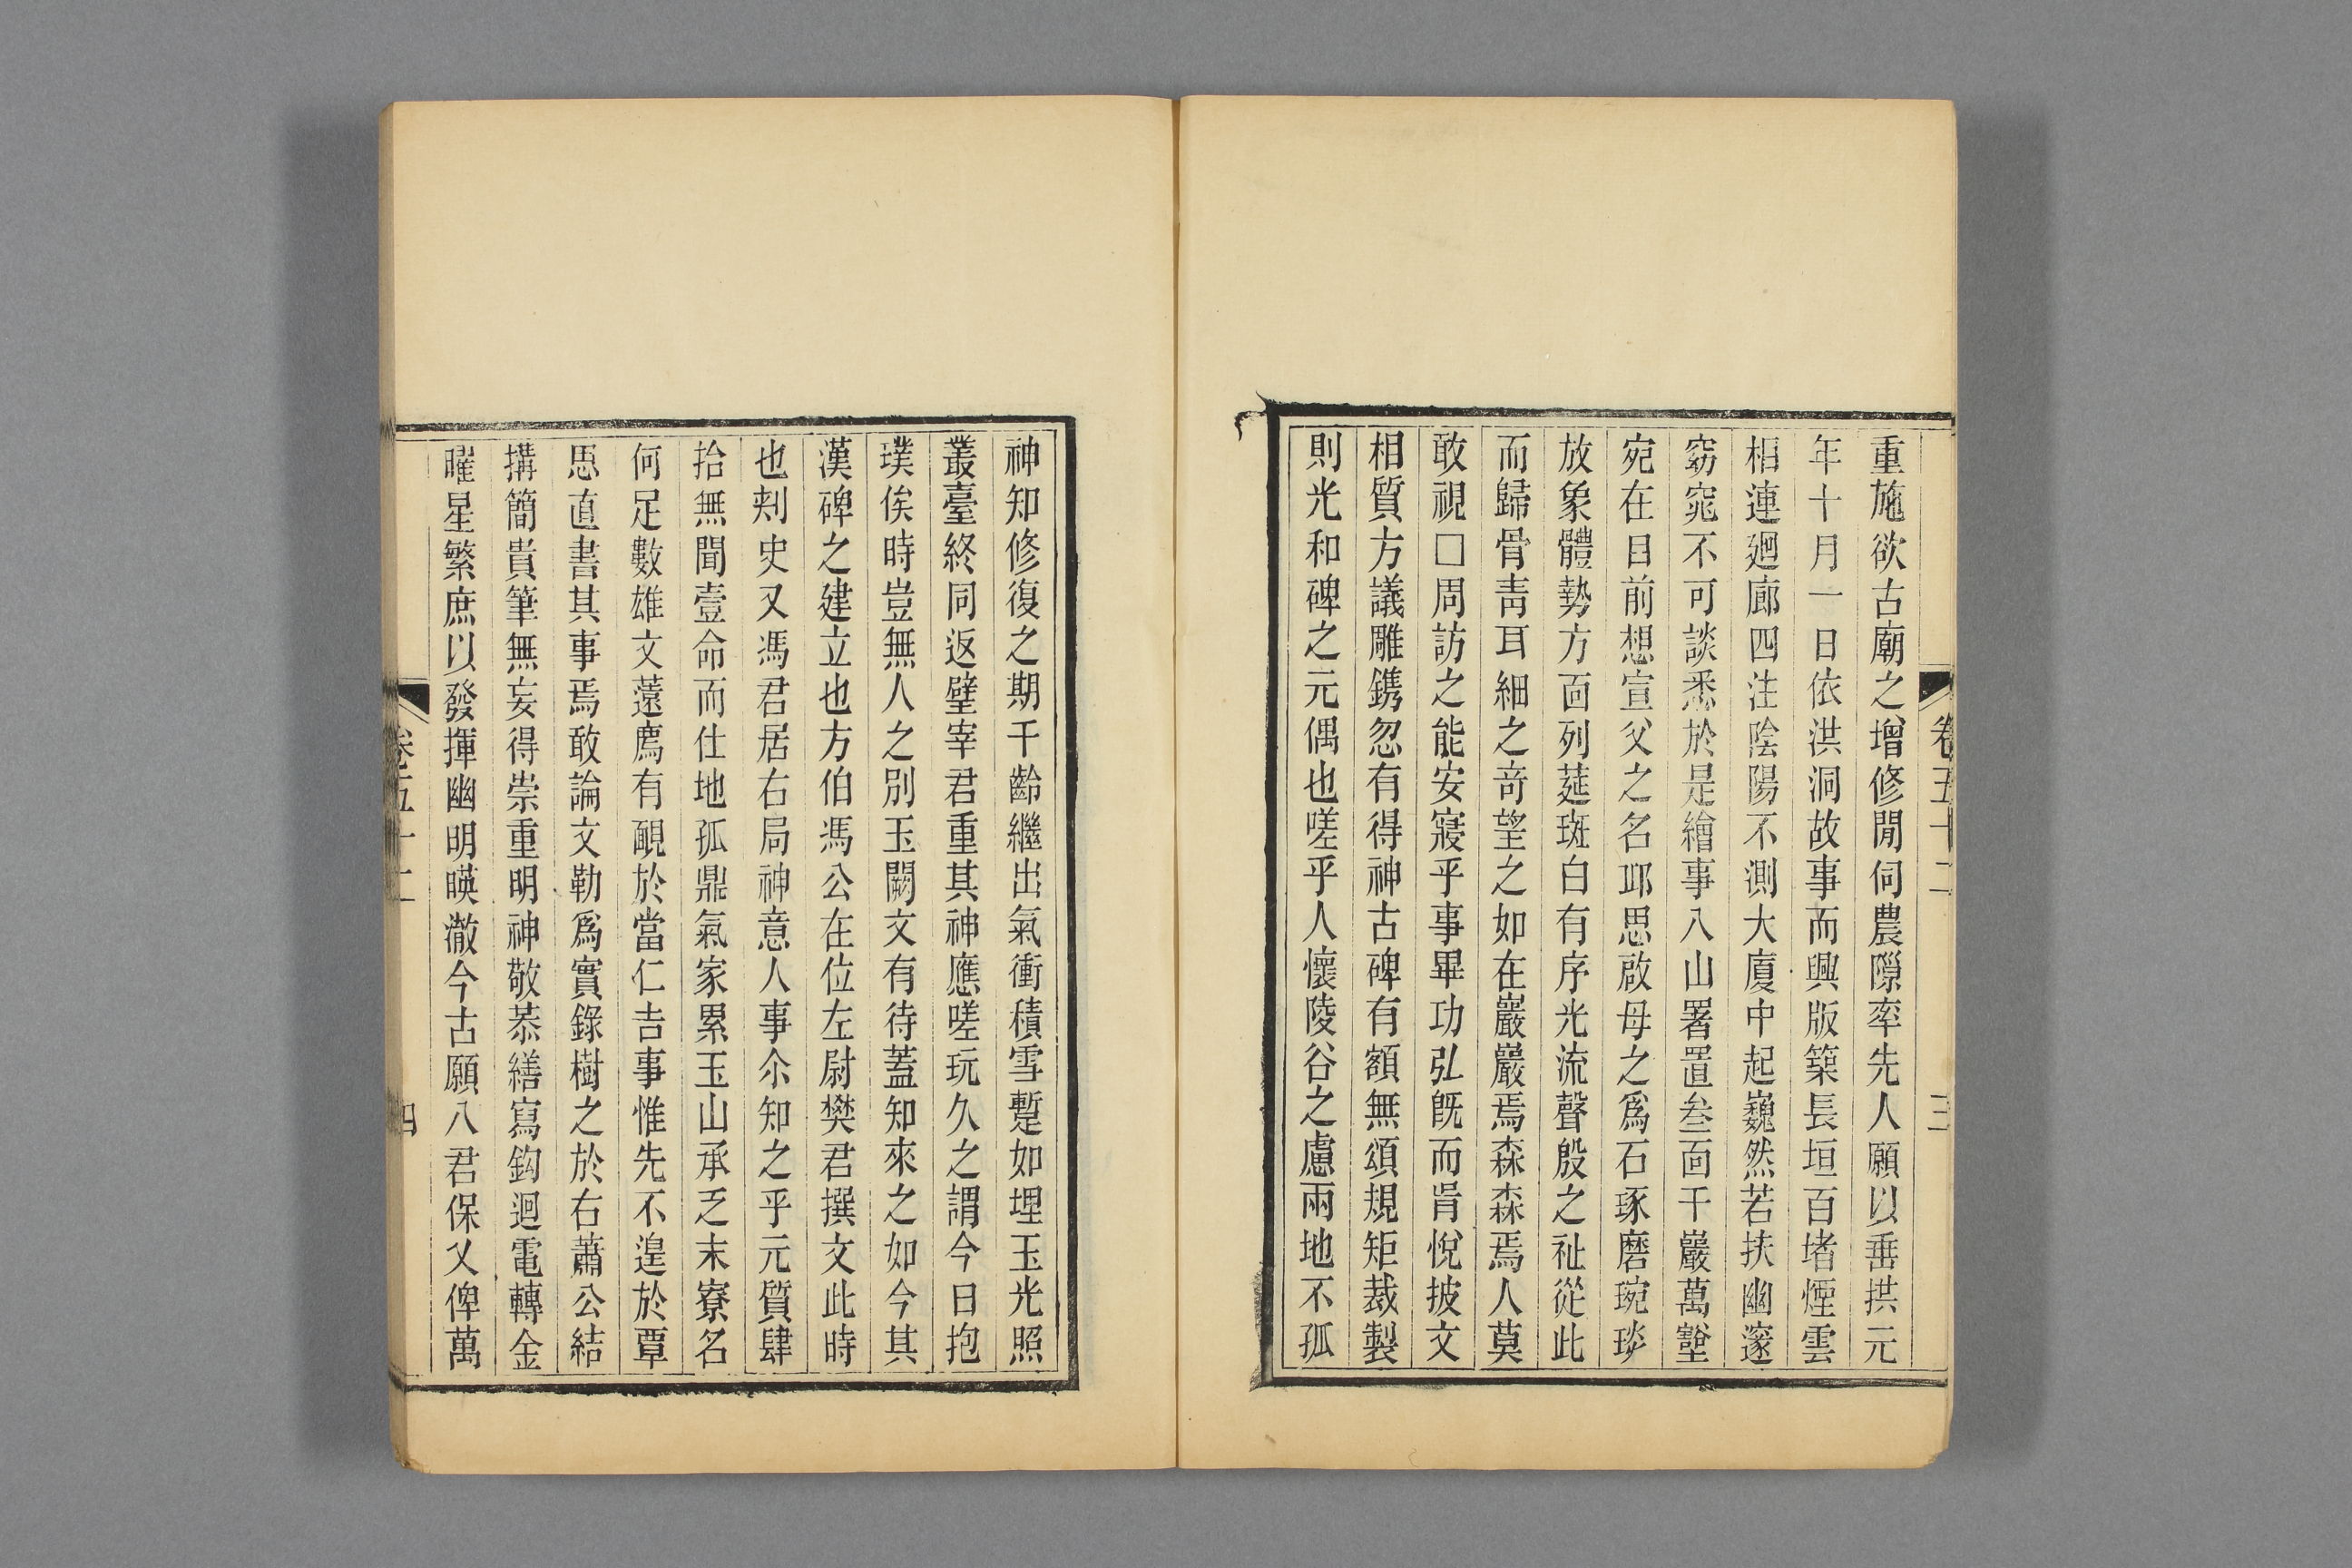 卷五十二
三
重施欲古廟之增修閒伺農隙率先人願以垂拱元
年十月一日依洪洞故事而興版築長垣百堵煙雲
相連廻廊四注陰陽不測大廈中起巍然若扶幽邃
窈窕不可談悉於是繪事八山署置叁面千巖萬壑
宛在目前想宣父之名邱思啟母之爲石琢磨琬琰
放象體勢方面列莚斑白有序光流聲殷之祉從此
而歸骨靑耳細之竒望之如在巖巖焉森森焉人莫
敢視□周訪之能安寢乎事畢功弘旣而肯悅披文
相質方議雕鐫忽有得神古碑有額無頌規矩裁製
則光和碑之元偶也嗟乎人懷陵谷之慮兩地不孤
神知修復之期千齡繼出氣衝積雪蹔如埋玉光照
叢臺終同返壁宰君重其神應嗟玩久之謂今日抱
璞俟時豈無人之別玉闕文有待蓋知來之如今其
漢碑之建立也方伯馮公在位左尉樊君撰文此時
也刾史又馮君居右局神意人事尒知之乎元質肆
拾無聞壹命而仕地孤鼎氣家累玉山承乏末寮名
何足數雄文薳廌有靦於當仁吉事惟先不遑於覃
思直書其事焉敢論文勒爲實錄樹之於右蕭公結
搆簡貴筆無妄得崇重明神敬恭繕寫鈎迴電轉金
曜星繁庶以發揮幽明暎澈今古願八君保乂俾萬
卷五十二
四